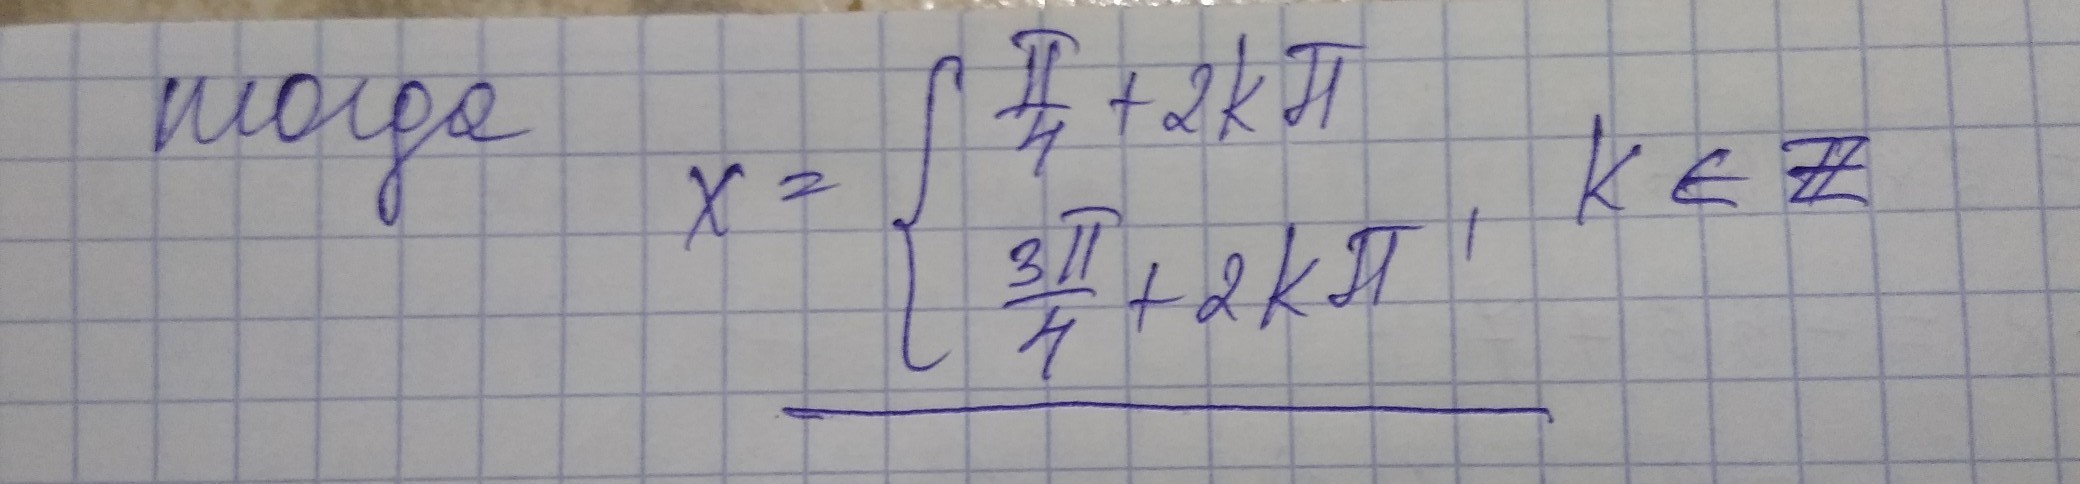 тогда x = { π/4 + 2kπ
3π/4 + 2kπ , k ∈ ℤ